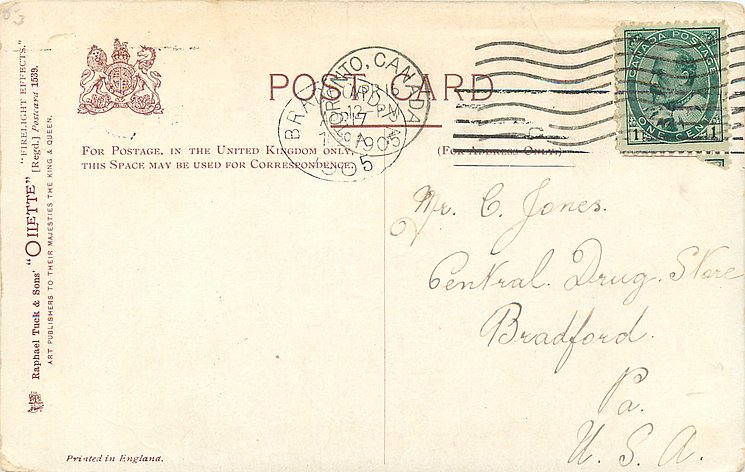 POST CARD
TORONTO, CANADA
1905
BRA
905
CANADA POSTAGE
1 ONE CENT 1
FOR POSTAGE, IN THE UNITED KINGDOM ONLY,
THIS SPACE MAY BE USED FOR CORRESPONDENCE.
(FOR ADDRESS ONLY.)
Mr. C. Jones.
Central. Drug. Store
Bradford.
Pa.
U. S. A.
"FIRELIGHT EFFECTS."
Raphael Tuck & Sons' "OILETTE" [Regd.] Postcard 1539.
ART PUBLISHERS TO THEIR MAJESTIES THE KING & QUEEN.
Printed in England.